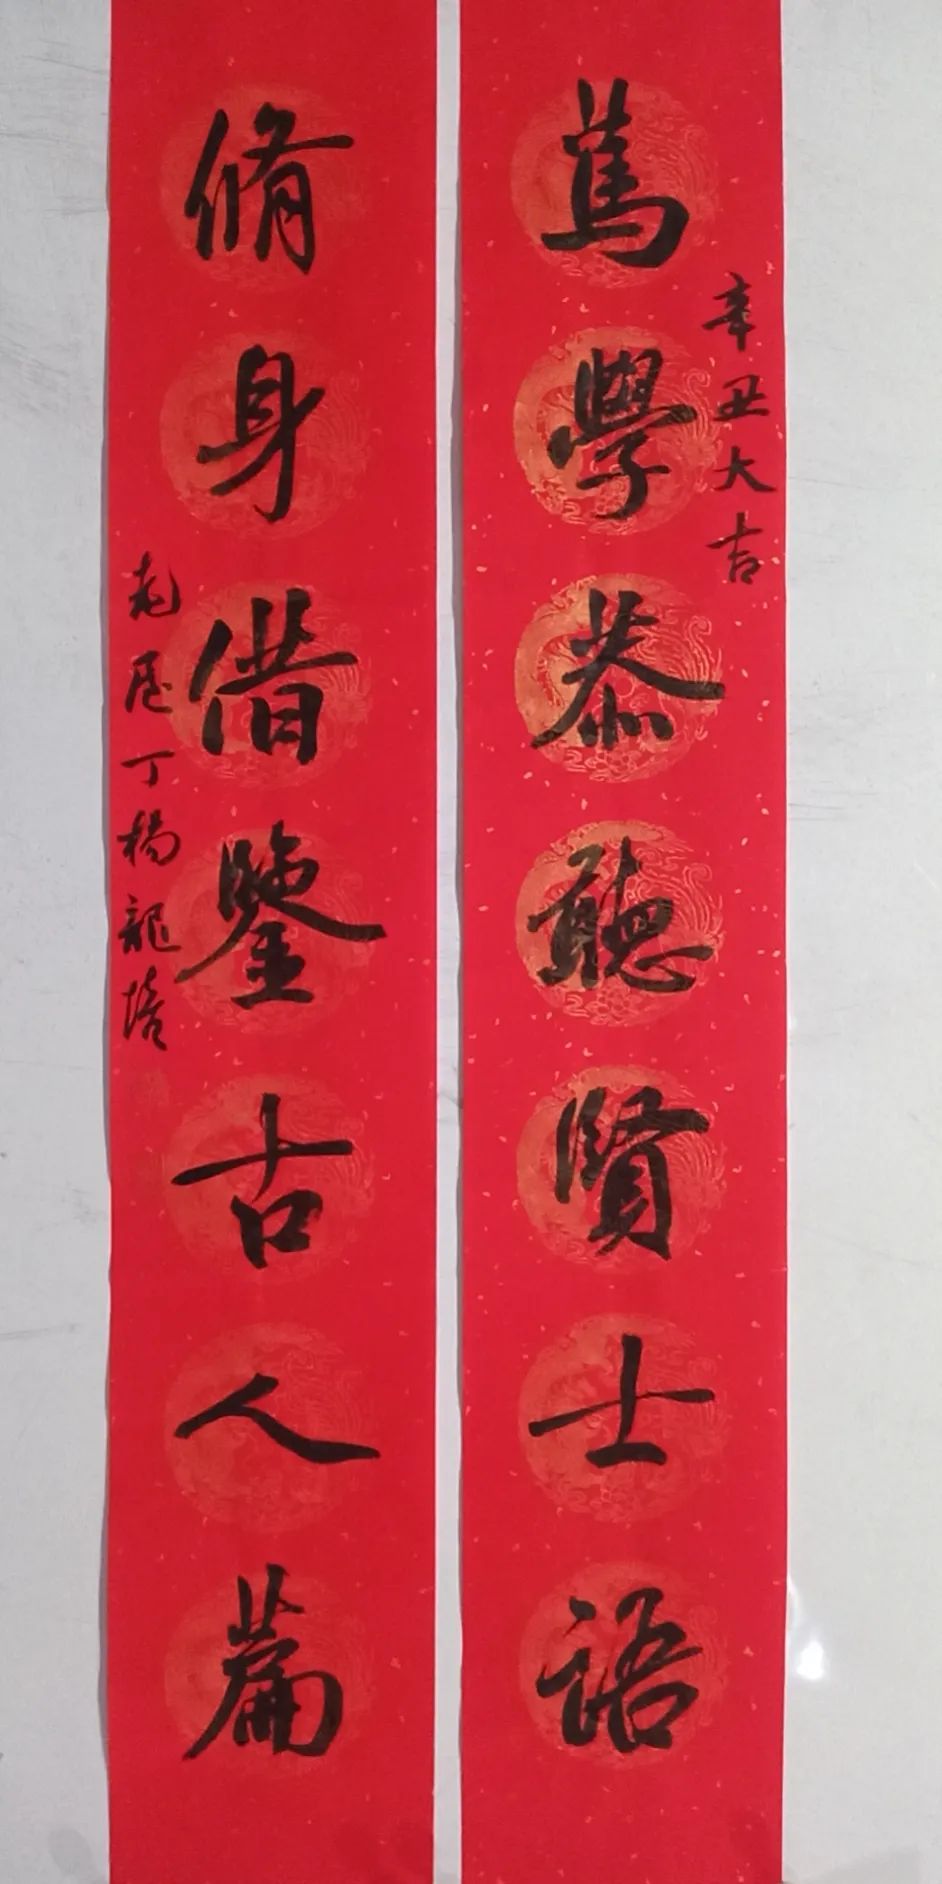 篤學恭聽賢士語
辛丑大吉
脩身借鑒古人篇
老屋丁楊龍培